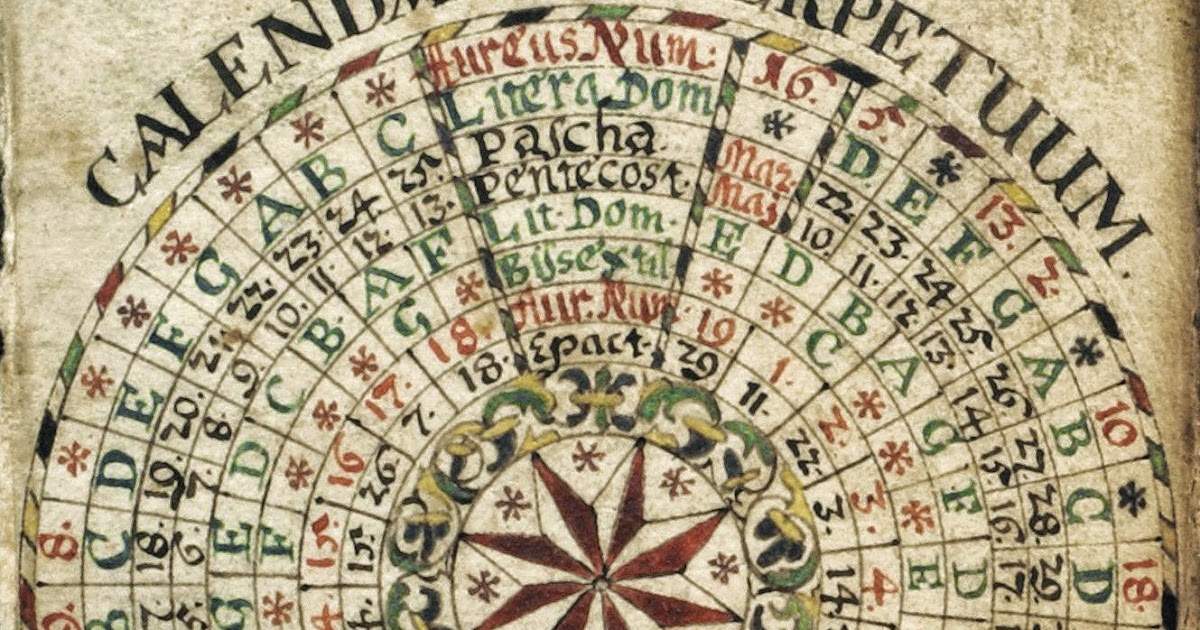 CALEND
RPETUUM.
Aureus Num:
Litera Dom
Pascha.
Pentecost.
Lit. Dom.
Bijsextil
Aur. Num
Epact.
16.
*
Mar.
Maj
E
*
19
29
5.
D
22
10.
D
*
1.
11.
*
E
23.
11.
B
C
2.
22.
13.
F
24
12.
A
*
3.
3.
2.
G
25.
13.
G
*
4
14.
*
A
26
14
F
*
10
B
27.
15.
D
E
*
C
28.
16.
18.
D
29.
17.
8.
C
18.
6.
E
F
15.
15.
*
D
19.
7.
D
*
16
26.
*
E
20.
8
C
*
17.
7.
*
F
21.
9
B.
*
18.
18.
*
G
22.
10.
A
G
*
A
23.
11.
F
*
*
B
24.
12.
*
C
25.
13.